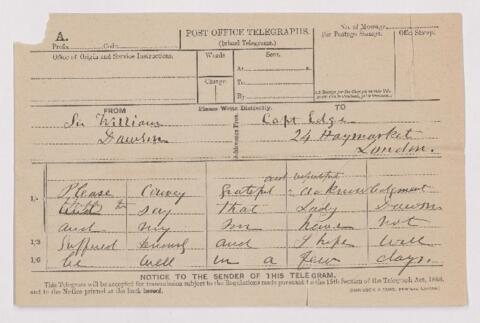 A.
POST OFFICE TELEGRAPHS.
(Inland Telegrams.)
No. of Message.
For Postage Stamps.
Office Stamp.
Prefix Code
Office of Origin and Service Instructions.
Words
Sent.
At
Charge
To
By
FROM
Please Write Distinctly.
TO
Sir William
Dawson
Capt Edge
24 Haymarket
London.
and
Please Convey grateful acknowledgment
say that Lady Dawson
and my Son have not
1/3 Suffered seriously and I hope will
1/6 be well in a few days.
NOTICE TO THE SENDER OF THIS TELEGRAM.
This Telegram will be accepted for transmission subject to the Regulations made pursuant to the 15th Section of the Telegraph Act, 1868,
and to the Notice printed at the back hereof.